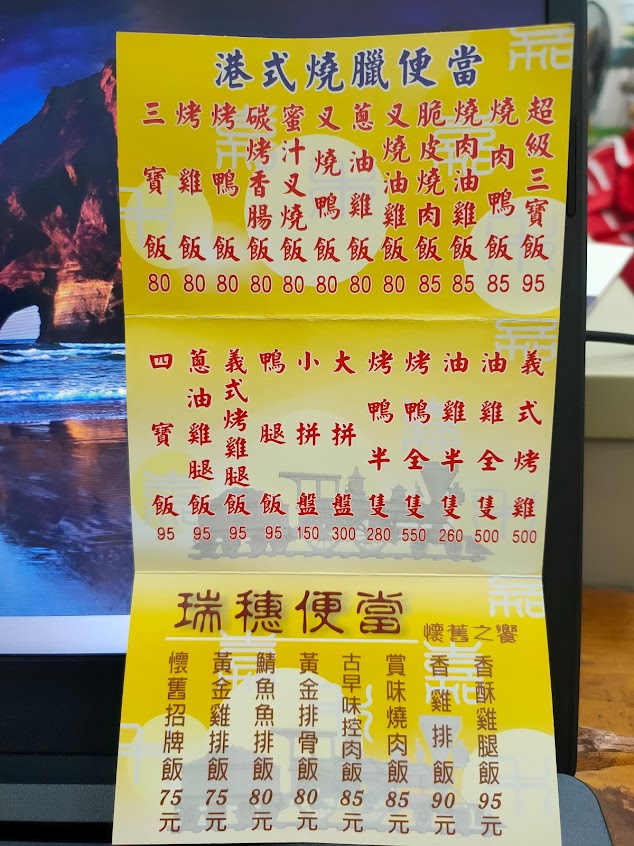 港式燒臘便當
三寶飯 80
烤雞飯 80
烤鴨飯 80
碳烤香腸飯 80
蜜汁叉燒飯 80
叉燒鴨飯 80
蔥油雞飯 80
叉燒油雞飯 80
脆皮燒肉飯 85
燒肉油雞飯 85
燒肉鴨飯 85
超級三寶飯 95
四寶飯 95
蔥油雞腿飯 95
義式烤雞腿飯 95
鴨腿飯 95
小拼盤 150
大拼盤 300
烤鴨半隻 280
烤鴨全隻 550
油雞半隻 260
油雞全隻 500
義式烤雞 500
瑞穗便當 懷舊之饗
懷舊招牌飯 75元
黃金雞排飯 75元
鯖魚魚排飯 80元
黃金排骨飯 80元
古早味控肉飯 85元
賞味燒肉飯 85元
香雞排飯 90元
香酥雞腿飯 95元